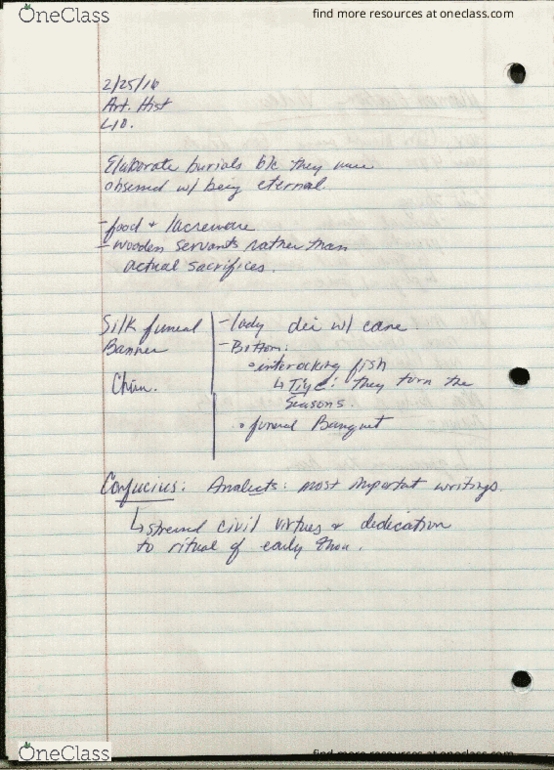 OneClass
find more resources at oneclass.com
2/25/16
Art. Hist
L10.
Elaborate burials b/c they were
obsessed w/ being eternal.
- food + lacreware
- wooden servants rather than
actual sacrifices.
Silk funeal
Banner
Chin.
- lady dei w/ cane
- Bottom:
• interocking fish
↳ : they turn the
Seasons.
• funeral Banquet
Confucius: Analects: most important writings.
↳ stressed civil virtues + dedication
to ritual of early
OneClass
find more resources at oneclass.com